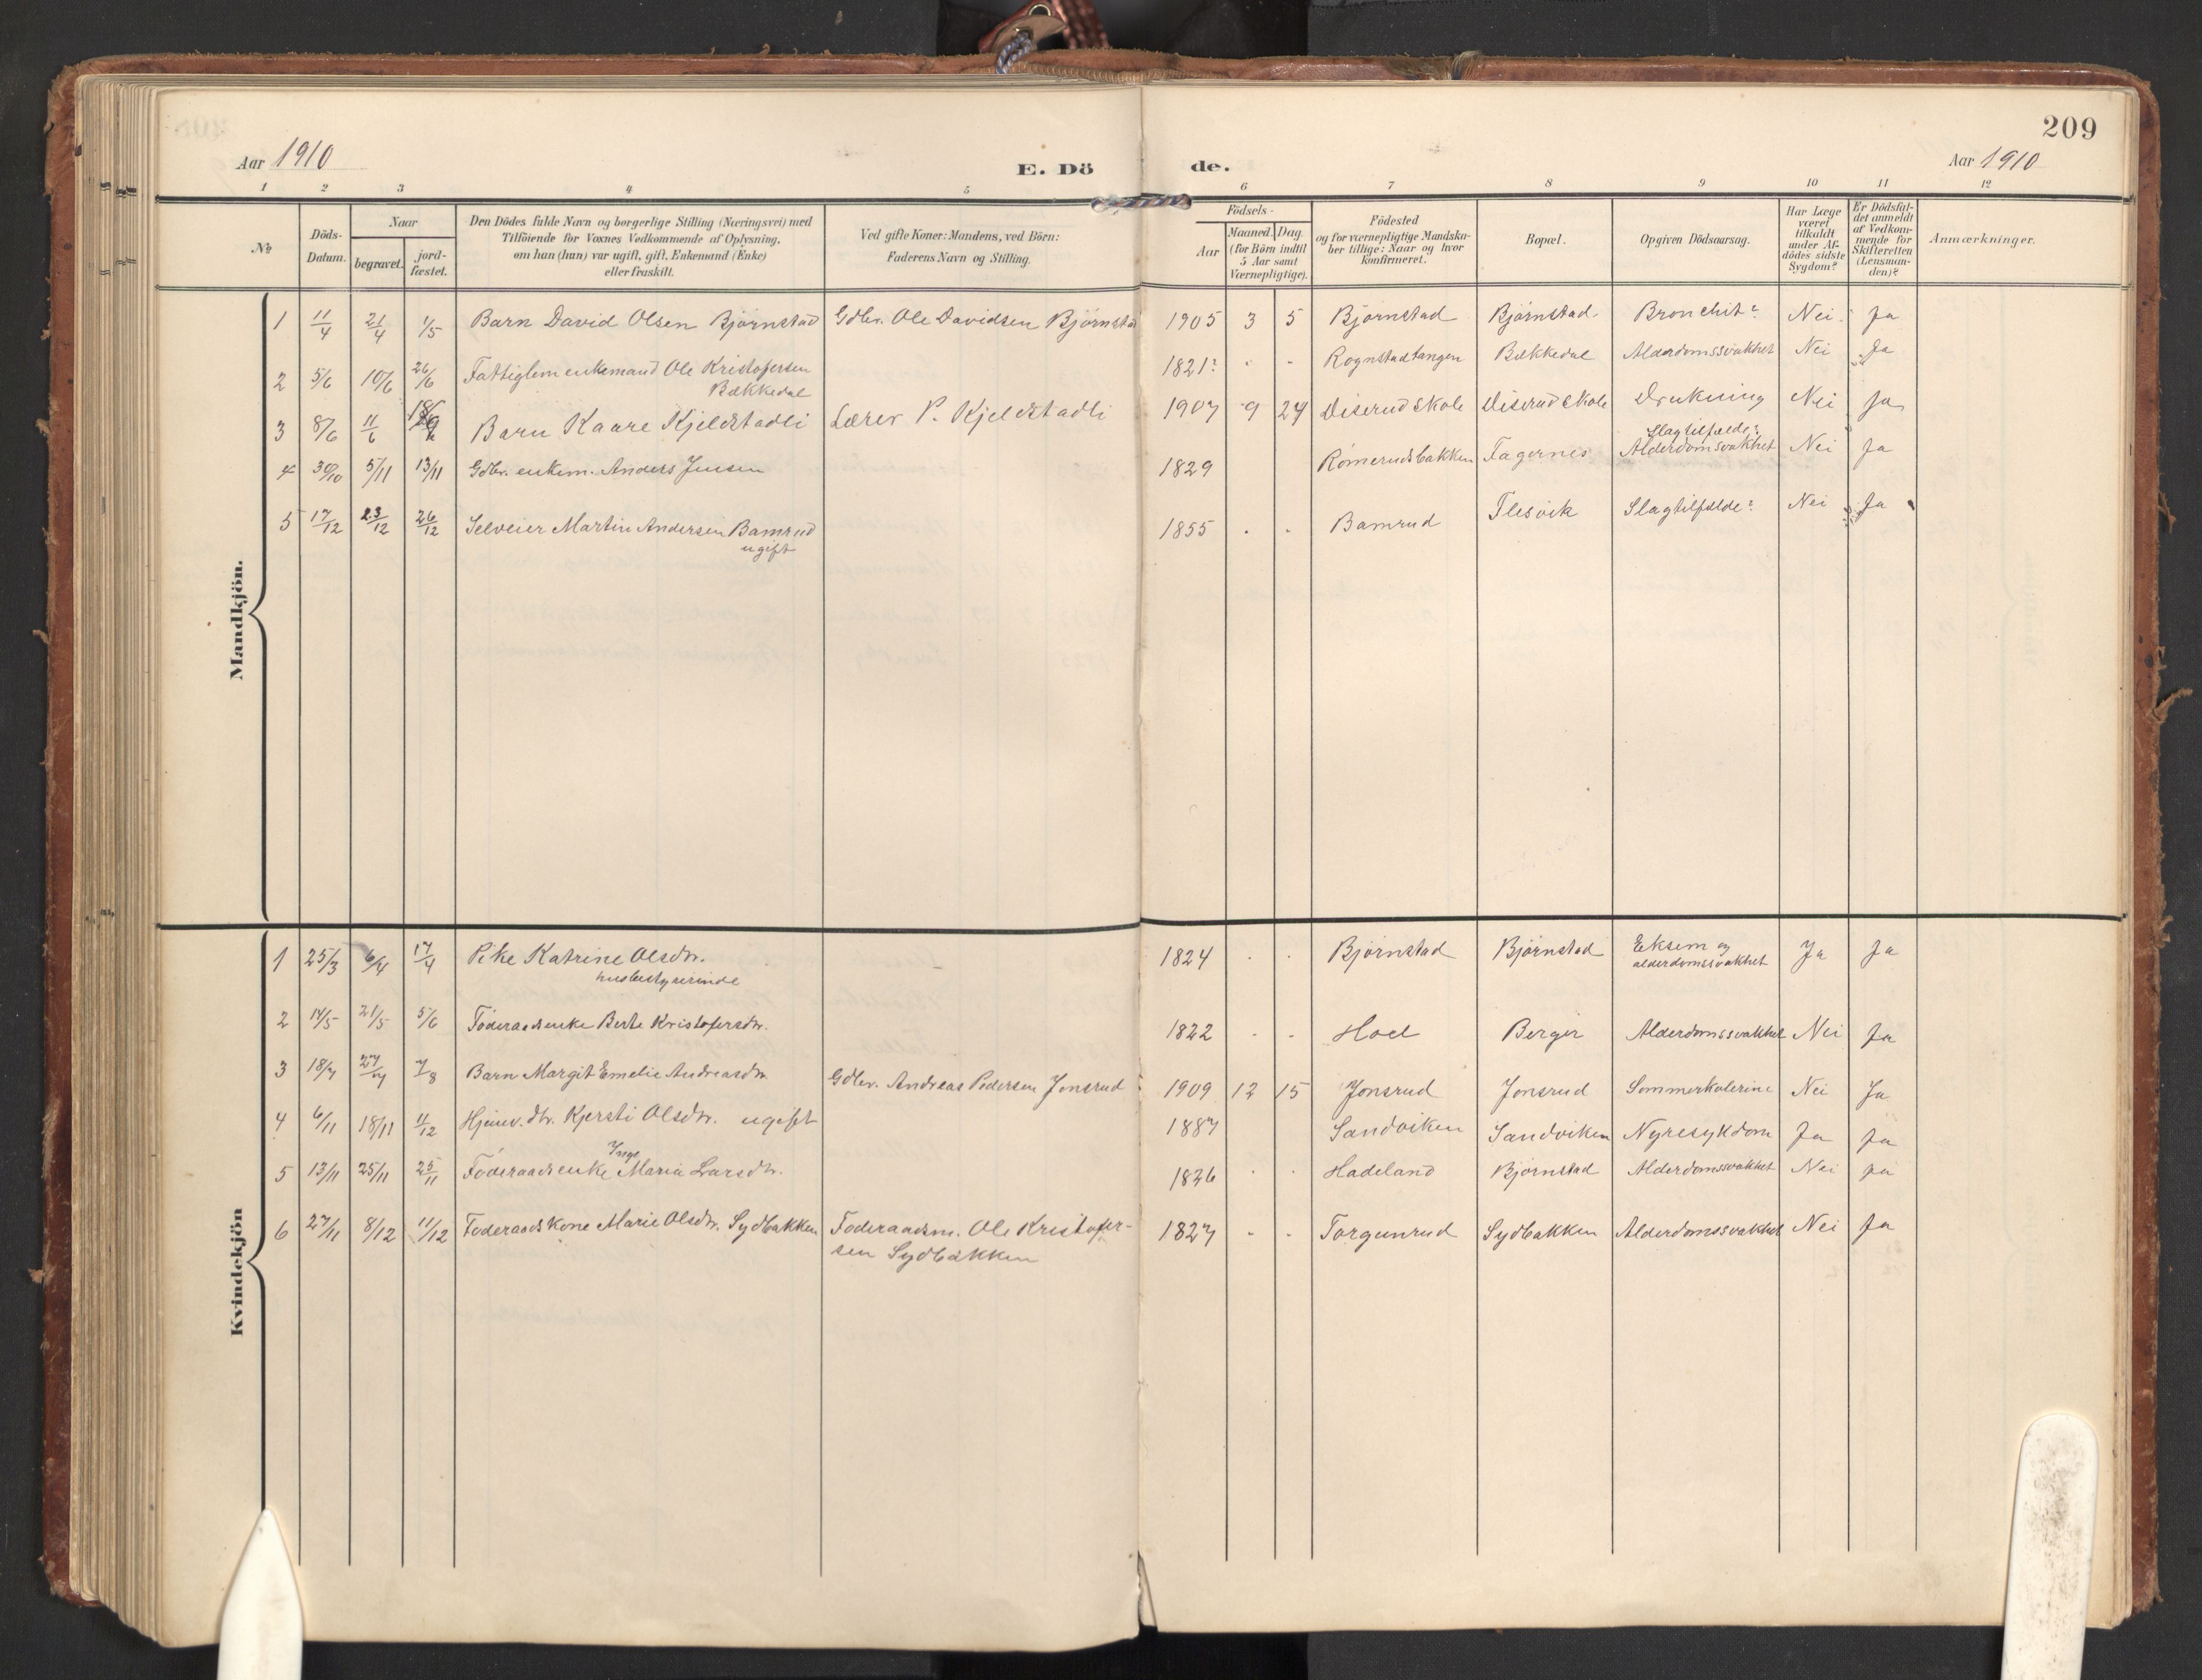 209
Aar 1910
E. Dö
de.
Aar 1910
1 2 3 4 5 6 7 8 9 10 11 12
No
Döds-
Datum.
Naar
begravet.
jord-
fæstet.
Den Dödes fulde Navn og borgerlige Stilling (Næringsvei) med
Tilföiende for Voxnes Vedkommende af Oplysning,
om han (hun) var ugift, gift, Enkemand (Enke)
eller fraskilt.
Ved gifte Koner: Mandens, ved Börn:
Faderens Navn og Stilling.
Födsels-
Aar
Maaned. Dag.
(for Börn indtil
5 Aar samt
Værnepligtige).
Födested
og for værnepligtige Mandska-
ber tillige: Naar og hvor
konfirmeret.
Bopæl.
Opgiven Dödsaarsag.
Har Læge
været
tilkaldt
under Af-
dödes sidste
Sygdom?
Er Dödsfal-
det anmeldt
af Vedkom-
mende for
Skifteretten
(Lensman-
den)?
Anmærkninger.
Mandkjön.
1 11/4 21/4 1/5 Barn David Olsen Bjørnstad Gdbr. Ole Davidsen Bjørnstad 1905 3 5 Bjørnstad Bjørnstad. Bronchit? Nei. Ja
2 5/6 10/6 26/6 Fattiglem enkemand Ole Kristofersen
Bækkedal 1821? . - Rognstadtangen Bækkedal Alderdomssvakhet Nei Ja
3 8/6 11/6 Barn Kaare Kjeldstadli Lærer P. Kjeldstadli 1907 9 24 Diserud Skole Diserud Skole Drukning Nei Ja
4 30/10 5/11 13/11 Gdbr. enkem. Anders Jensen 1829 Rømerudsbakken Fagernes Slagtilfælde?
Alderdomsvakhet Nei Ja
5 17/12 23/12 26/12 Selveier Martin Andersen Bamrud
ugift 1855 . - Bamrud Flesvik Slagtilfælde? Nei Ja
Kvindekjön
1 25/3 6/4 17/4 Pike Katrine Olsdtr.
husbestyrerinde 1824 . . Bjørnstad Bjørnstad Eksem og
alderdomssvakhet Ja Ja
2 14/5 21/5 5/6 Føderaadsenke Berte Kristofersdtr. 1822 - - Hoel Berger Alderdomssvakhet Nei Ja
3 18/7 27/7 7/8 Barn Margit Emelie Andreasdtr. Gdbr. Andreas Pedersen Jonsrud 1909 12 15 Jonsrud Jonsrud Sommerkolerine Nei Ja
4 6/11 18/11 11/12 Hjemv. dtr. Kjersti Olsdtr. ugift 1887 Sandviken Sandviken Nyresykdom Ja Ja
5 13/11 25/11 25/11 Føderaadsenke Inge Maria Larsdtr. 1826 . . Hadeland Bjørnstad Alderdomssvakhet Nei Ja
6 27/11 8/12 11/12 Føderaadskone Marie Olsdtr. Sydbakken Føderaadsm. Ole Kristofer-
sen Sydbakken 1827 - - Torgunrud Sydbakken Alderdomssvakhet Nei Ja